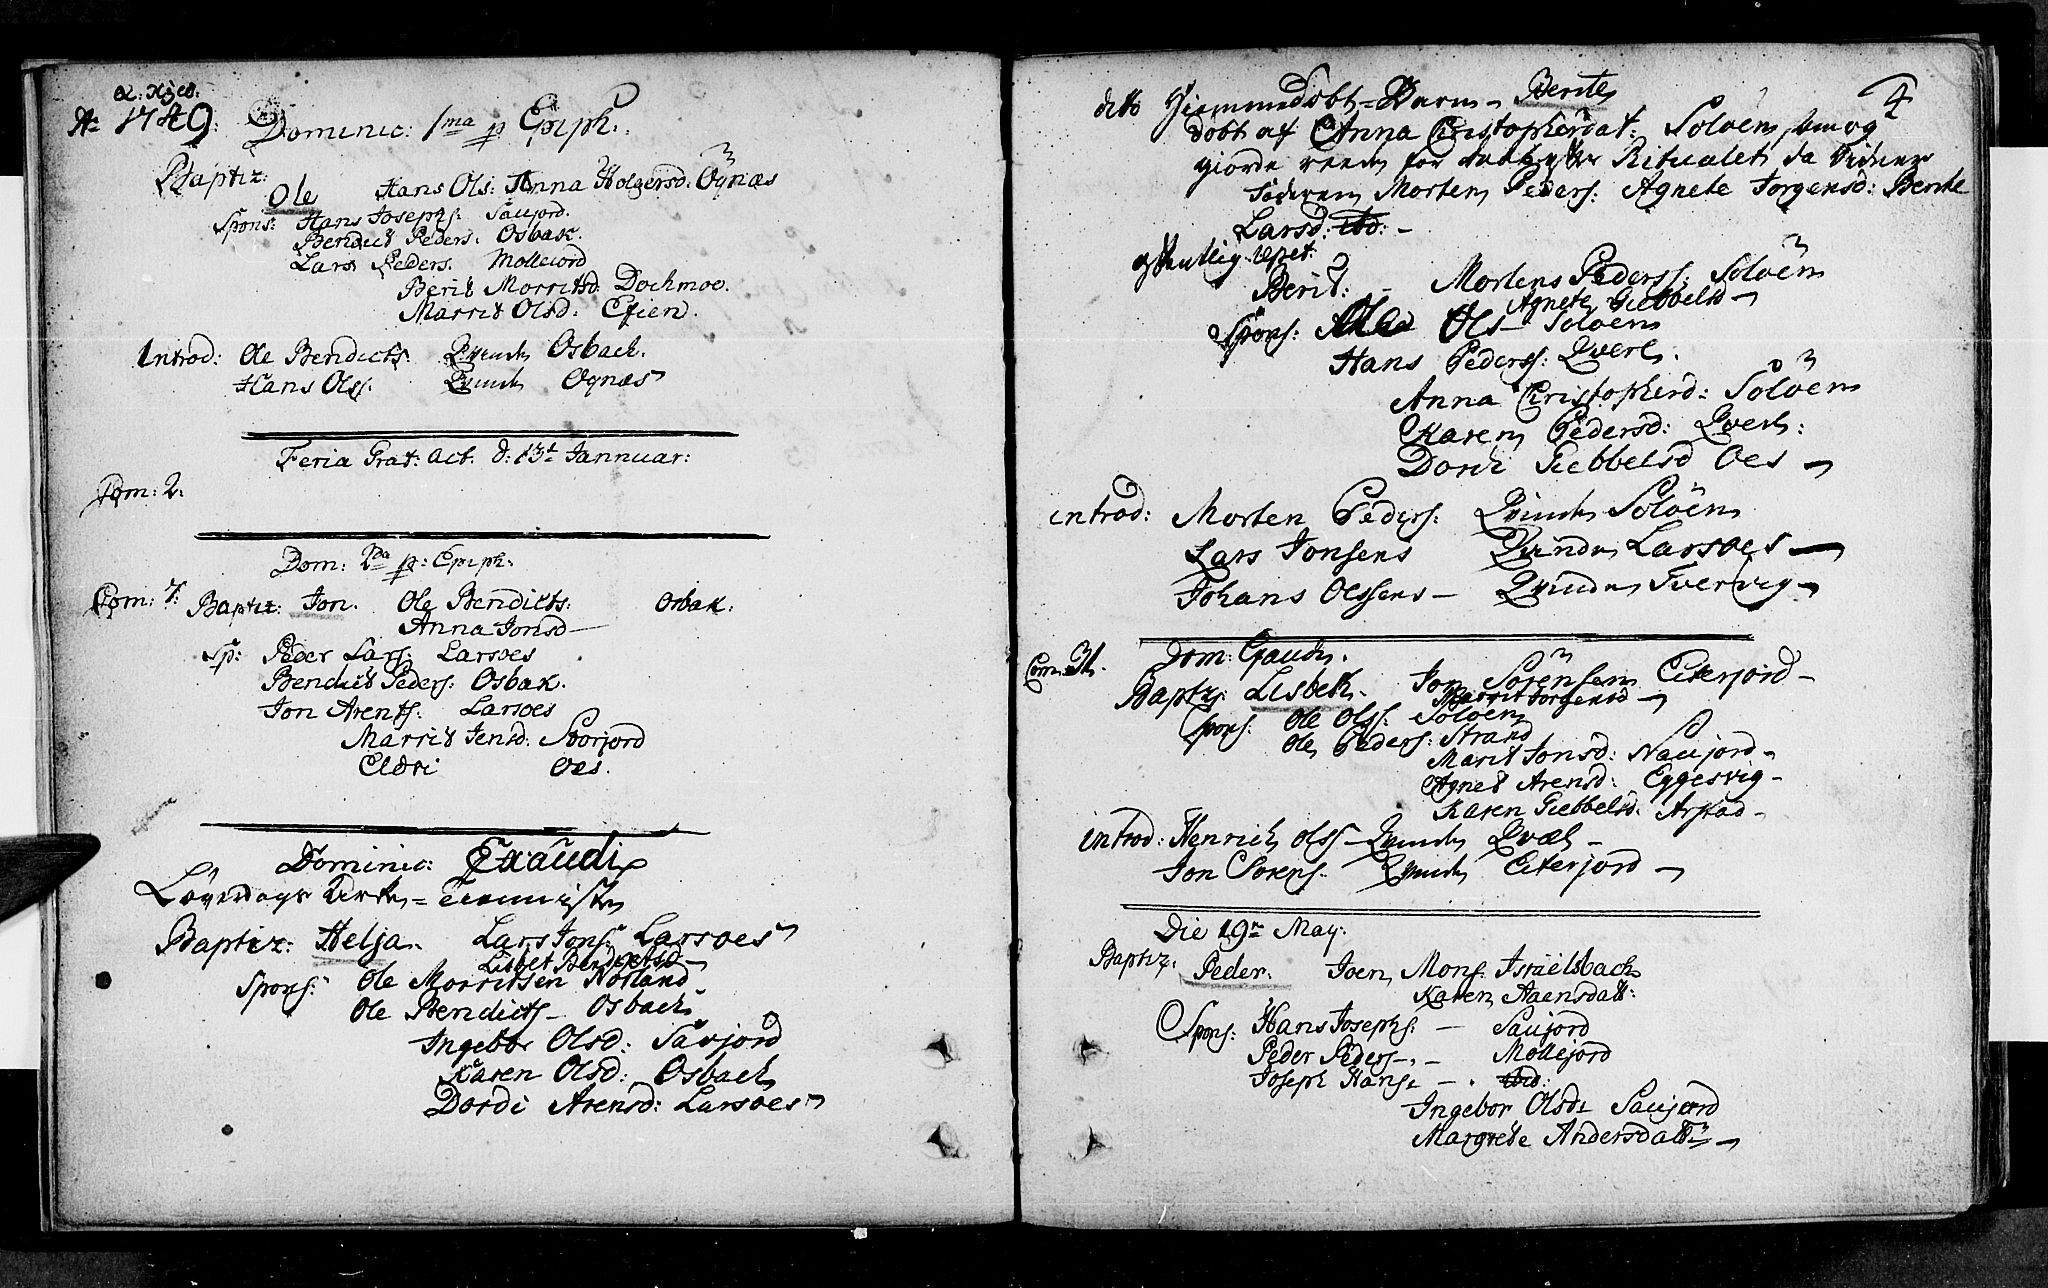 Ao 1749. Dominic: 1ma p Epiph:.
Baptiz:
Ole Hans Ols: Anna Holgersd: Ognæs
Spons: Hans Josephs: Saujord.
Bendict Peders. Osbak.
Lars Peders. Mollejord
Berit Morritsd: Dochmoe.
Marrit Olsd: Efien.
Introd: Ole Bendicts. Qvinde Osbach.
Hans Olss. Qvinde Ognæs
Feria Grat: Act. d: 13t Jannuar:
Com: 2.
Dom: 2da p: Epiph.
Com: 7. Baptiz: Jon. Ole Bendicts. Osbak.
Anna Jonsd
Sp: Peder Lars: Larsoes
Bendict Peders: Osbak.
Jon Arents: Larsoes
Marrit Jensd: Storjord
Eldri Oes.
Dominic: Exaudi
Løverdags
Baptiz: Helja. Lars Jons: Larsoes
Lisbet Bendictsd
Spons: Ole Morritsen Notland
Ole Bendicts Osbach
Ingebor Olsd: Saujord
Karen Olsd: Osbach
Dordi Arensd: Larsoes
4
ditto Hiemmedøbt Barn Berite
døbt af Anna Christopherdat: Soløen, som og
giorde reede for Ritualet da
Morten Peders: Agnete Jørgensd: Berite
Larsd:
Berit: Mortens Pederss: Soløen
Agnete Giebbelsd
Spons: Ols Soløen
Hans Pederss: Qverl.
Anna Christopherd: Soløen
Karen Pedersd: Qverl:
Dorte Giebbelsd Oes
introd: Morten Peders: Qvinde Soløen
Lars Jonsens Qvinde Larsoes
Johans Olssens Qvinde Tvervig
Dom: Gaud.
Baptz: Lisbeth. Jon Sørensen Eiterjord
Marrit Jorgensd
Spons: Ole Olss: Soløen
Ole Peders: Strand
Marit Jonsd: Naujord
Agnet Arensd: Eggesvig
Karen Giebbelsd: Arstad
introd: Henrich Olss Qvinde Qvæl
Jon Sorens. Qvinde Eiterjord
Die 19n May:
Baptiz. Peder. Joen Mons: Israelsbach
Karen Aaensdatt:
Spons: Hans Josephs: Saujord
Peder Peders Mollejord
Joseph Hanss ibid:
Ingebor Olsd: Saujord
Margrete Andersdatt